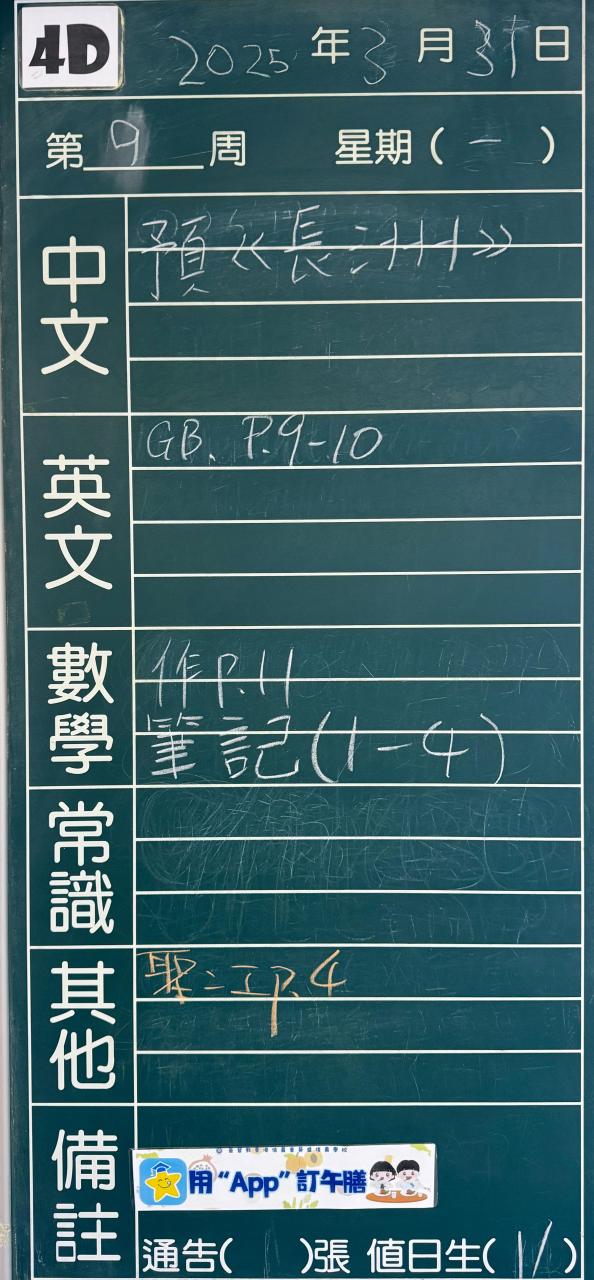 4D 2025年3月31日
第9周 星期(一)
中文
預《長洲》
英文
GB. P.9-10
數學
作P.11
筆記(1-4)
常識
其他
聖:工P.4
備註
用“App”訂午膳
通告( )張 值日生(11)